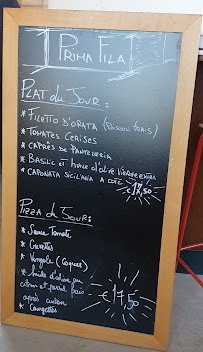 PRIMA FILA
PLAT du JOUR:
* FILETTO D'ORATA (POISSON FRAIS)
* TOMATES CERISES
* CAPRES DE PANTELLERIA
* BASILIC ET HUILE d'OLIVE VIERGE EXTRA
* CAPONATA SICILIANA A COTÉ
€ 18,50
PIZZA du JOUR:
* Sauce Tomate
* Crevettes
* Vongole (Coques)
* huile d'olive au
citron et persil frais
après cuisson
* Courgettes
€ 17,50